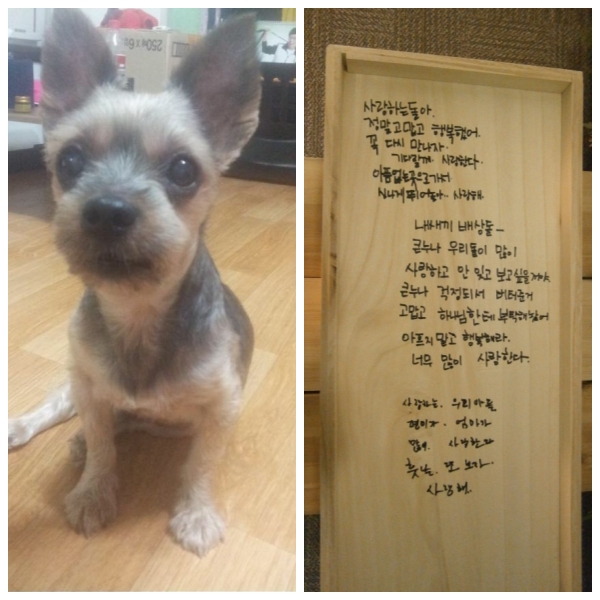 250㎖ x 6
사랑하는돌아.
정말고맙고 행복했어.
꼭 다시 만나자.
기다릴께. 사랑한다.
아픔없는곳으로가서
신나게 뛰어놀아.. 사랑해.
내새끼 배상돌~
큰누나 우리돌이 많이
사랑하고 안 잊고 보고싶을꺼야
큰누나 걱정되서 버텨준거
고맙고 하나님한테 부탁해놨어
아프지말고 행복해라.
너무 많이 사랑한다.
사랑하는. 우리아들
엄마가
많이. 사랑한다
훗날. 또 보자.
사랑해.